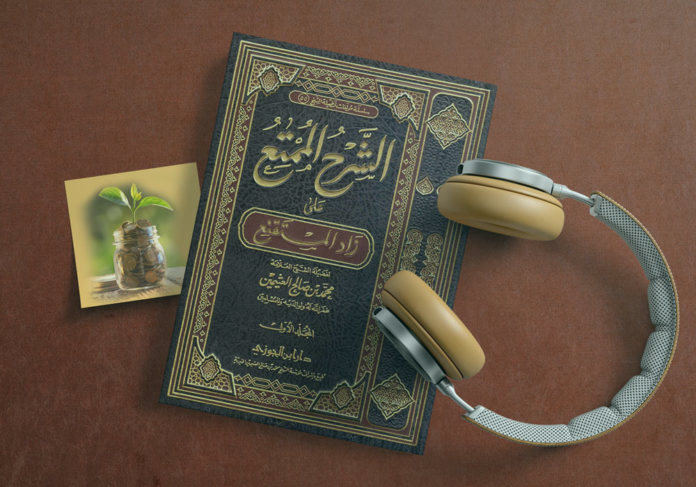 سلسلة مؤلفات فضيلة الشيخ (٥٥)
الشَّرْحُ المُمْتِعُ
عَلَىٰ
زَادِ المُسْتَقْنِعِ
لفضيلة الشيخ العلامة
محمد بن صالح العثيمين
غفر الله له ولوالديه وللمسلمين
المجلد الأول
دار ابن الجوزي